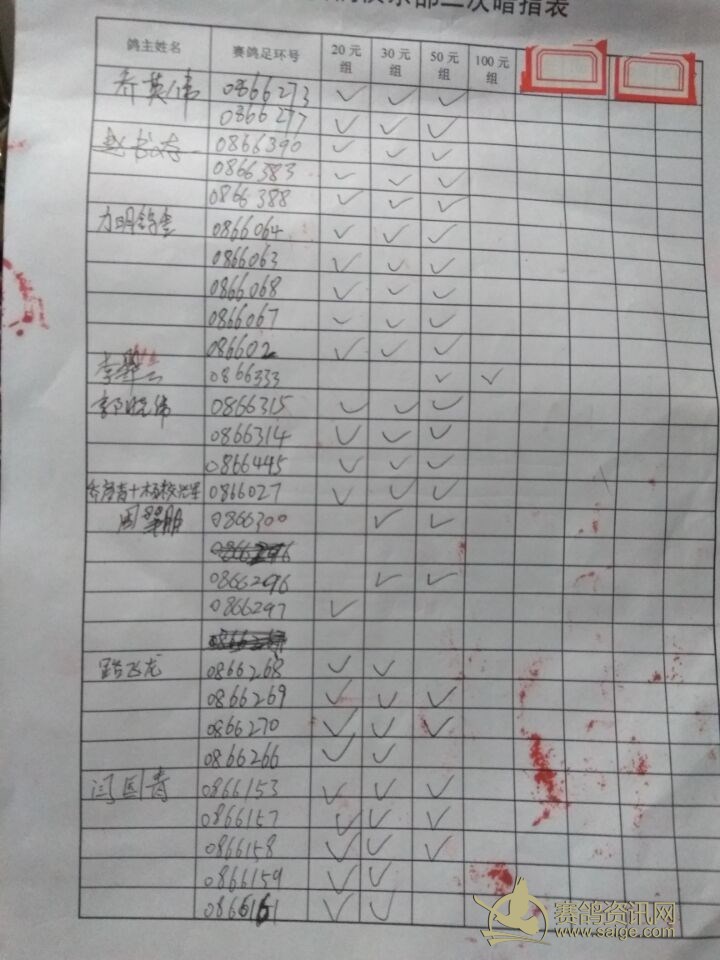 部二次暗指表
鸽主姓名 赛鸽足环号 20元组 30元组 50元组 100元组
乔英伟 0866273 ✓ ✓ ✓
0866277 ✓ ✓ ✓
赵 0866390 ✓ ✓ ✓
0866383 ✓ ✓ ✓
0866388 ✓ ✓ ✓
0866064 ✓ ✓ ✓
0866063 ✓ ✓ ✓
0866068 ✓ ✓ ✓
0866067 ✓ ✓ ✓
086602 ✓ ✓ ✓
0866333 ✓ ✓
郭晓伟 0866315 ✓ ✓ ✓
0866314 ✓ ✓ ✓
0866445 ✓ ✓ ✓
0866027 ✓ ✓ ✓
周 鹏 0866300 ✓ ✓
0866296 ✓ ✓
0866297 ✓
路飞龙 0866268 ✓ ✓
0866269 ✓ ✓ ✓
0866270 ✓ ✓ ✓
0866266 ✓ ✓
闫国青 0866153 ✓ ✓ ✓
0866157 ✓ ✓ ✓
0866158 ✓ ✓ ✓
0866159 ✓ ✓
0866161 ✓ ✓
赛鸽资讯网
www.saige.com